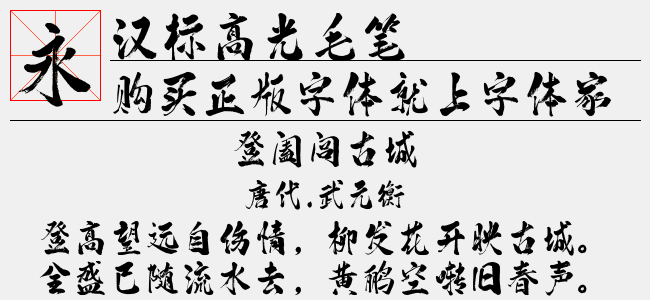 永
汉标高光毛笔
购买正版字体就上字体家
登阖闾古城
唐代.武元衡
登高望远自伤情，柳发花开映古城。
全盛已随流水去，黄鹂空啭旧春声。